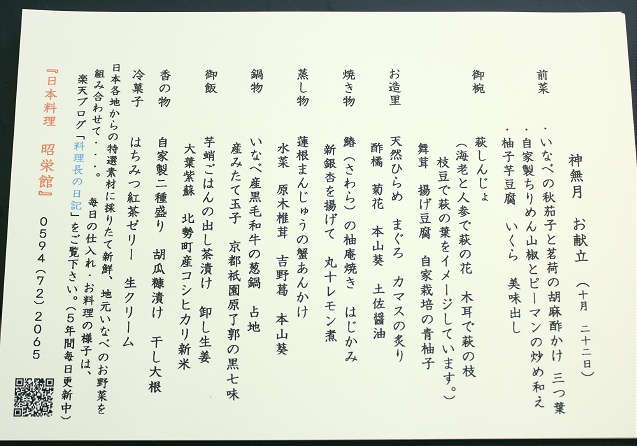 神無月　お献立　（十月　二十二日）
前菜　・いなべの秋茄子と茗荷の胡麻酢かけ　三つ葉
・自家製ちりめん山椒とピーマンの炒め和え
・柚子芋豆腐　いくら　美味出し
御椀　萩しんじょ
（海老と人参で萩の花　木耳で萩の枝
枝豆で萩の葉をイメージしています。）
舞茸　揚げ豆腐　自家栽培の青柚子
お造里　天然ひらめ　まぐろ　カマスの炙り
酢橘　菊花　本山葵　土佐醤油
焼き物　鰆（さわら）の柚庵焼き　はじかみ
新銀杏を揚げて　丸十レモン煮
蒸し物　蓮根まんじゅうの蟹あんかけ
水菜　原木椎茸　吉野葛　本山葵
鍋物　いなべ産黒毛和牛の葱鍋　占地
産みたて玉子　京都祇園原了郭の黒七味
御飯　芋蛸ごはんの出し茶漬け　卸し生姜
大葉紫蘇　北勢町産コシヒカリ新米
香の物　自家製二種盛り　胡瓜糠漬け　干し大根
冷菓子　はちみつ紅茶ゼリー　生クリーム
日本各地からの特選素材に採りたて新鮮、地元いなべのお野菜を
組み合わせて・・・。　毎日の仕入れ・お料理の様子は、
楽天ブログ「料理長の日記」をご覧下さい。（５年間毎日更新中）
『日本料理　昭栄館』　０５９４（７２）２０６５